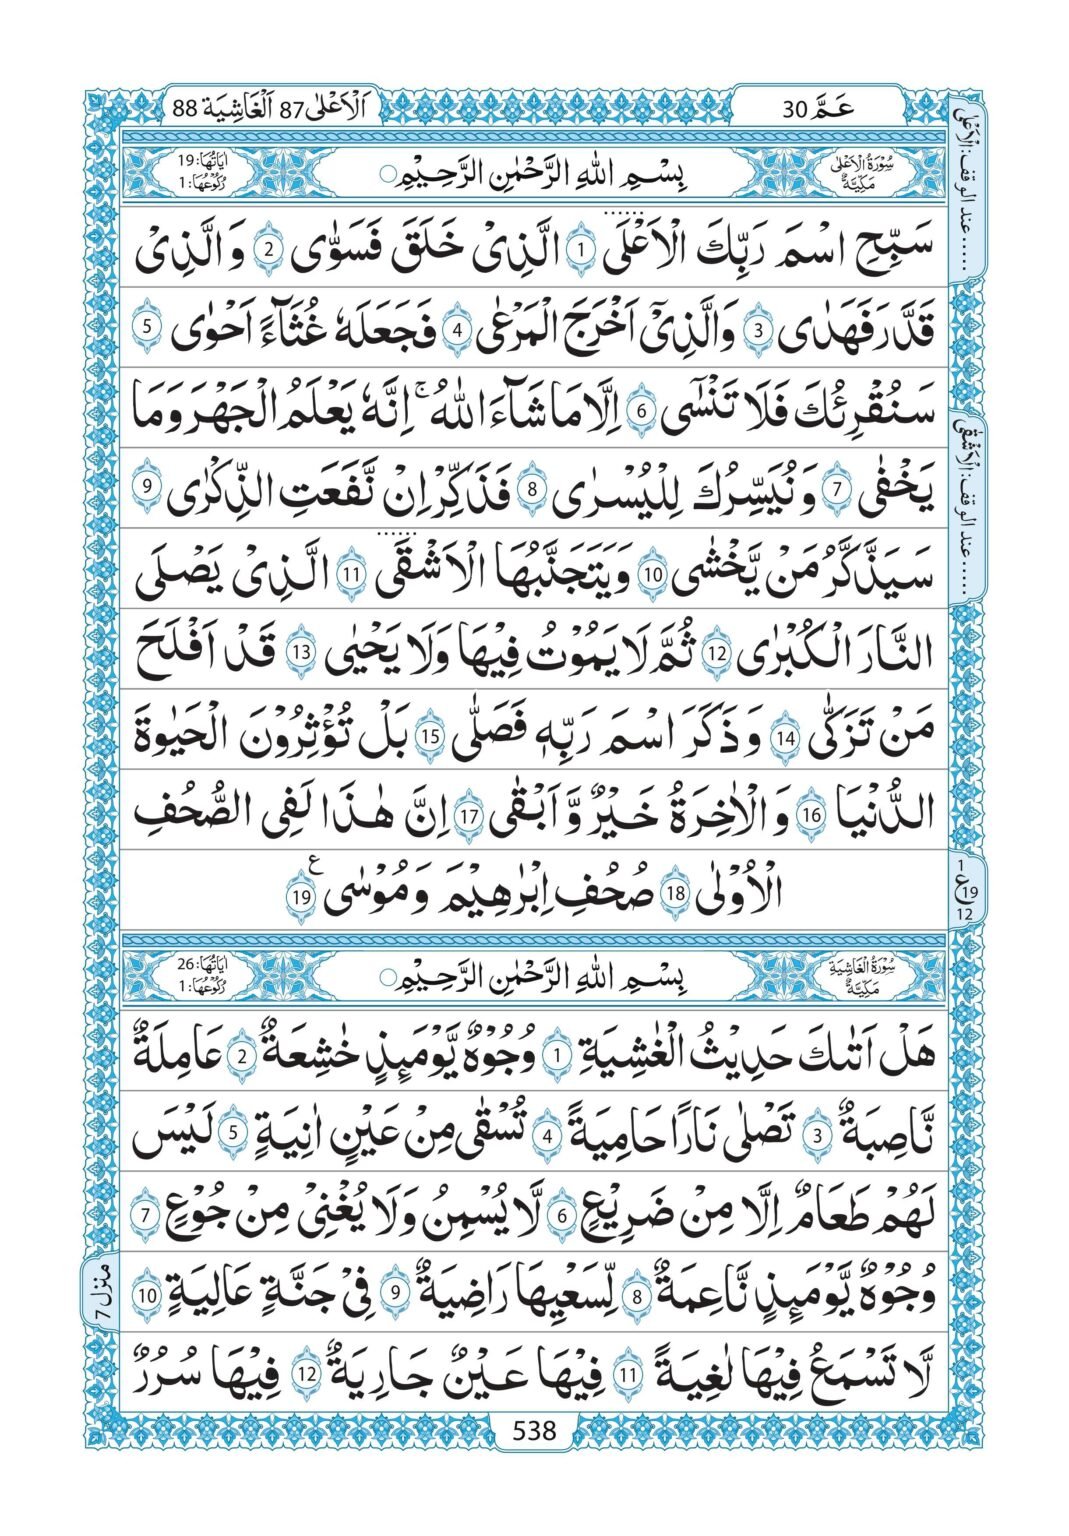 عَمَّ 30
اَلْاَعْلٰى 87 اَلْغَاشِيَة 88
سُوْرَةُ الْاَعْلٰى مَكِّيَّةٌ
بِسْمِ اللّٰهِ الرَّحْمٰنِ الرَّحِيْمِ
اٰيَاتُهَا: 19
رُكُوْعُهَا: 1
سَبِّحِ اسْمَ رَبِّكَ الْاَعْلَى 1 الَّذِىْ خَلَقَ فَسَوّٰى 2 وَ الَّذِىْ
قَدَّرَ فَهَدٰى 3 وَالَّذِىْٓ اَخْرَجَ الْمَرْعٰى 4 فَجَعَلَهٗ غُثَآءً اَحْوٰى 5
سَنُقْرِئُكَ فَلَا تَنْسٰٓى 6 اِلَّا مَا شَآءَ اللّٰهُ ۚ اِنَّهٗ يَعْلَمُ الْجَهْرَ وَمَا
يَخْفٰى 7 وَ نُيَسِّرُكَ لِلْيُسْرٰى 8 فَذَكِّرْ اِنْ نَّفَعَتِ الذِّكْرٰى 9
سَيَذَّكَّرُ مَنْ يَّخْشٰى 10 وَيَتَجَنَّبُهَا الْاَشْقَى 11 الَّذِىْ يَصْلَى
النَّارَ الْكُبْرٰى 12 ثُمَّ لَا يَمُوْتُ فِيْهَا وَلَا يَحْيٰى 13 قَدْ اَفْلَحَ
مَنْ تَزَكّٰى 14 وَ ذَكَرَ اسْمَ رَبِّهٖ فَصَلّٰى 15 بَلْ تُؤْثِرُوْنَ الْحَيٰوةَ
الدُّنْيَا 16 وَ الْاٰخِرَةُ خَيْرٌ وَّ اَبْقٰى 17 اِنَّ هٰذَا لَفِى الصُّحُفِ
الْاُوْلٰى 18 صُحُفِ اِبْرٰهِيْمَ وَ مُوْسٰى ع 19
سُوْرَةُ الْغَاشِيَةِ مَكِّيَّةٌ
بِسْمِ اللّٰهِ الرَّحْمٰنِ الرَّحِيْمِ
اٰيَاتُهَا: 26
رُكُوْعُهَا: 1
هَلْ اَتٰىكَ حَدِيْثُ الْغٰشِيَةِ 1 وُجُوْهٌ يَّوْمَئِذٍ خٰشِعَةٌ 2 عَامِلَةٌ
نَّاصِبَةٌ 3 تَصْلٰى نَارًا حَامِيَةً 4 تُسْقٰى مِنْ عَيْنٍ اٰنِيَةٍ 5 لَيْسَ
لَهُمْ طَعَامٌ اِلَّا مِنْ ضَرِيْعٍ 6 لَّا يُسْمِنُ وَلَا يُغْنِىْ مِنْ جُوْعٍ 7
وُجُوْهٌ يَّوْمَئِذٍ نَّاعِمَةٌ 8 لِّسَعْيِهَا رَاضِيَةٌ 9 فِىْ جَنَّةٍ عَالِيَةٍ 10
لَّا تَسْمَعُ فِيْهَا لٰغِيَةً 11 فِيْهَا عَيْنٌ جَارِيَةٌ 12 فِيْهَا سُرُرٌ
..... عند الوقف: اَلْاَعْلٰى
..... عند الوقف: اَلْاَشْقٰى
1
ع 19
12
منزل 7
538